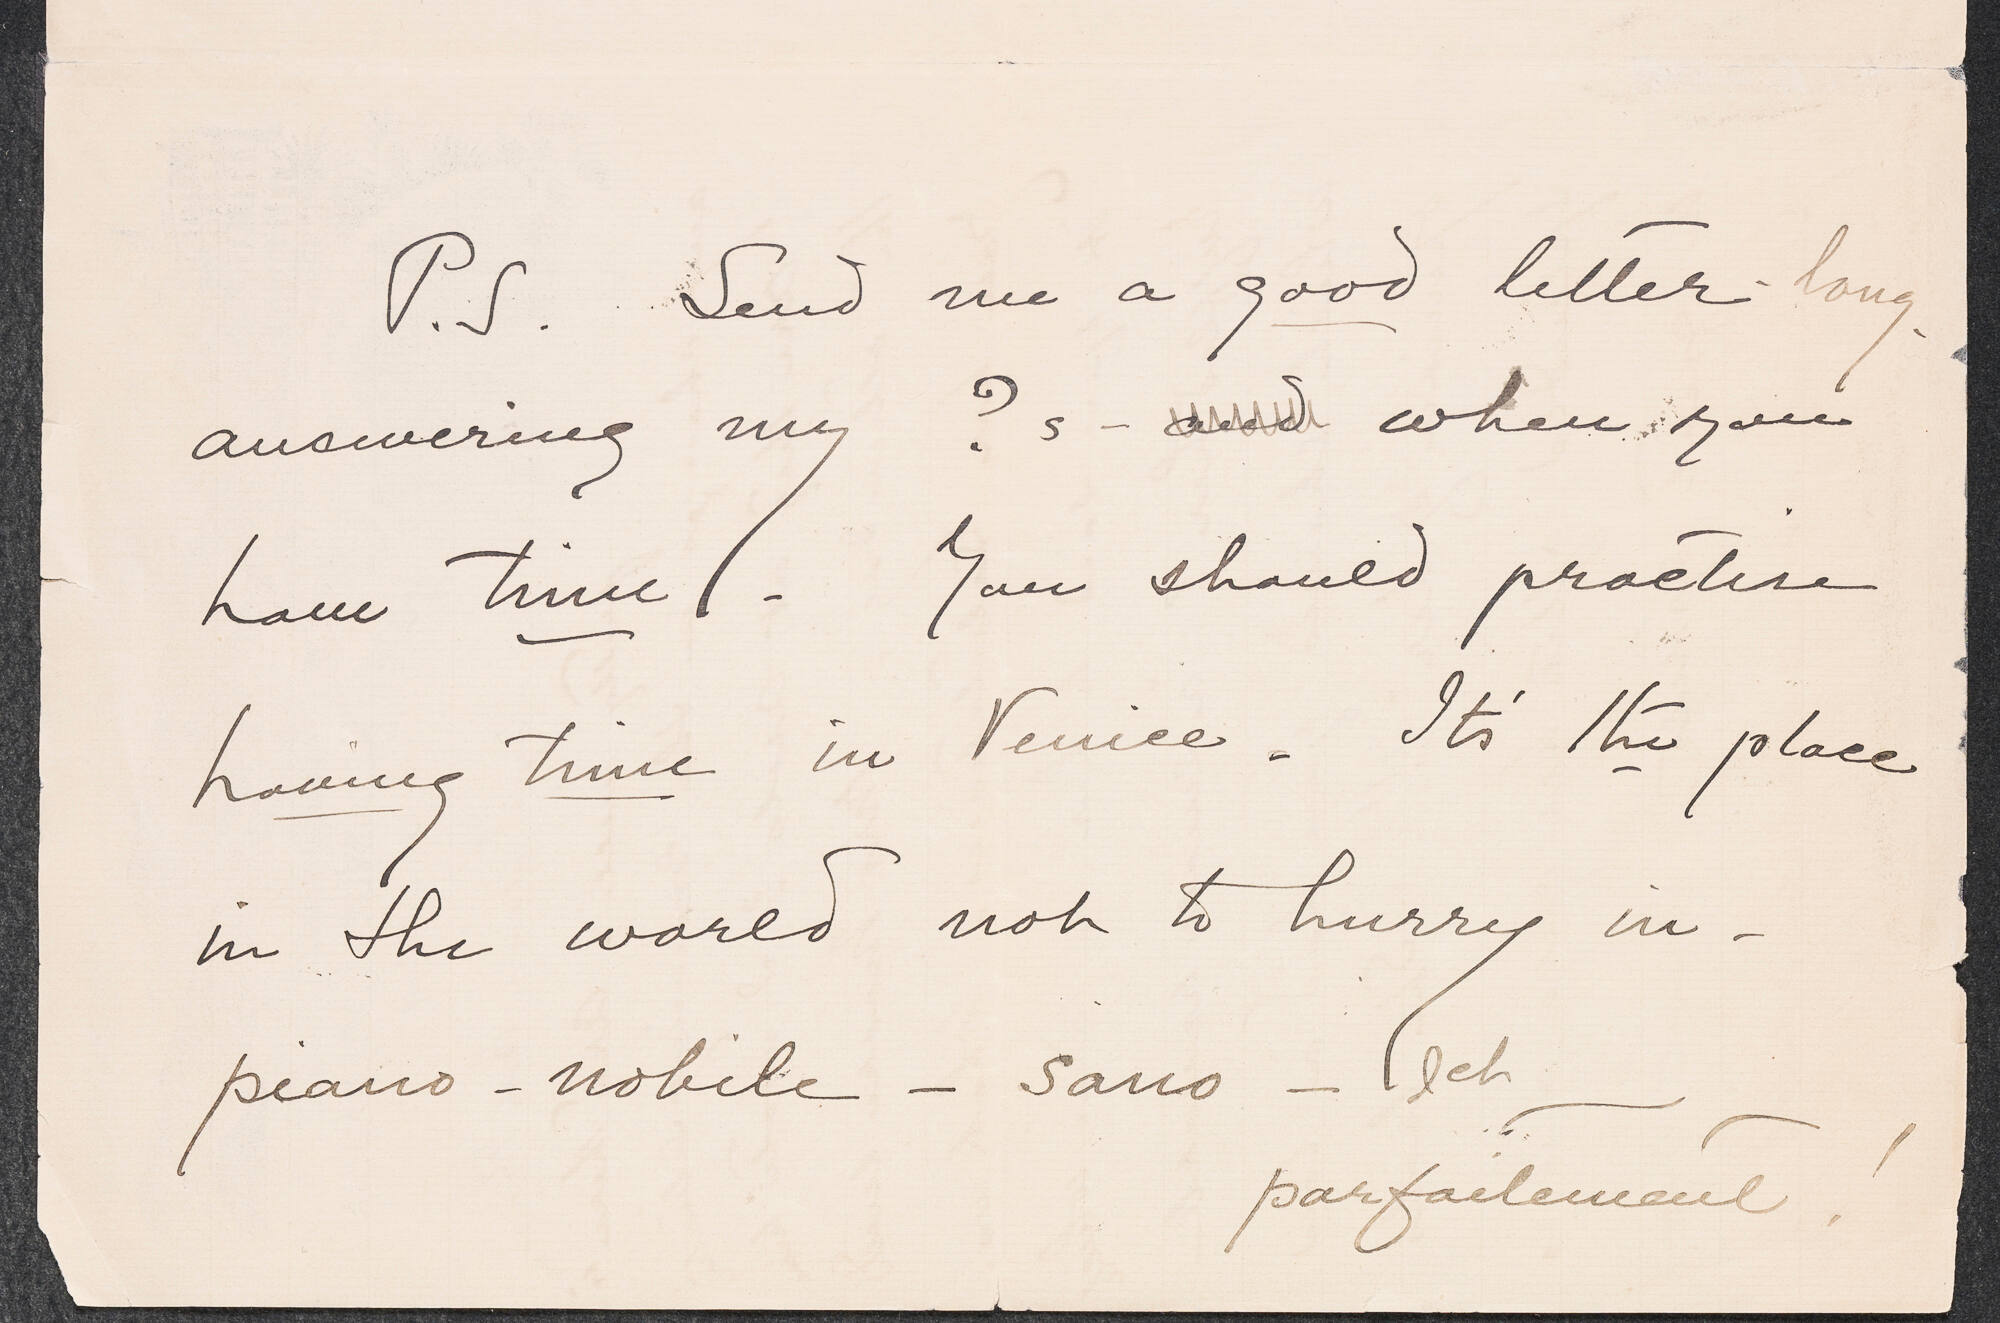 P.S. Send me a good letter - long.
answering my ?s - and when you
have time. You should practise
having time in Venice. It's the place
in the world not to hurry in -
piano - nobile - sano -
parfaitement!